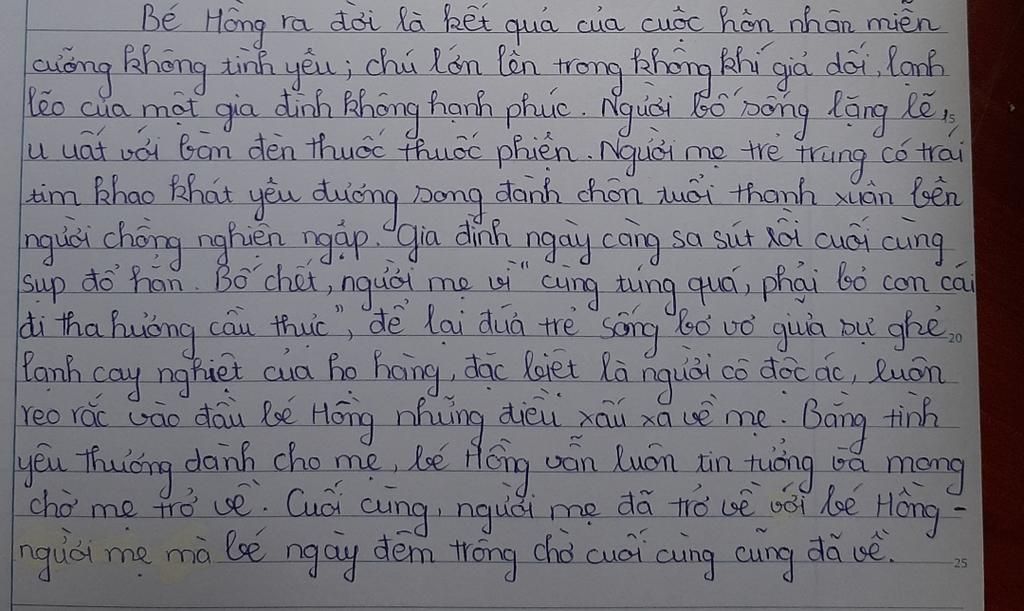 Bé Hồng ra đời là kết quả của cuộc hôn nhân miễn
cưỡng không tình yêu; chú lớn lên trong không khí giả dối, lạnh
lẽo của một gia đình không hạnh phúc. Người bố sống lặng lẽ, 15
u uất với bàn đèn thuốc thuốc phiện. Người mẹ trẻ trung có trái
tim khao khát yêu đương song đành chôn tuổi thanh xuân bên
người chồng nghiện ngập. Gia đình ngày càng sa sút rồi cuối cùng
sụp đổ hẳn. Bố chết, người mẹ vì "cùng túng quá, phải bỏ con cái
đi tha hương cầu thực", để lại đứa trẻ sống bơ vơ giữa sự ghẻ 20
lạnh cay nghiệt của họ hàng, đặc biệt là người cô độc ác, luôn
reo rắc vào đầu bé Hồng những điều xấu xa về mẹ. Bằng tình
yêu thương dành cho mẹ, bé Hồng vẫn luôn tin tưởng và mong
chờ mẹ trở về. Cuối cùng, người mẹ đã trở về với bé Hồng -
người mẹ mà bé ngày đêm trông chờ cuối cùng cũng đã về. 25